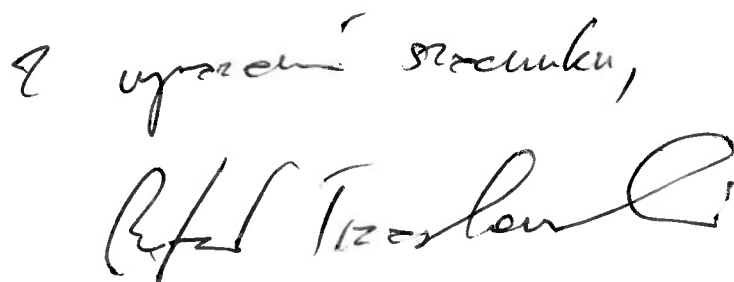 Z wyrazami szacunku,
Rafał Trzaskowski